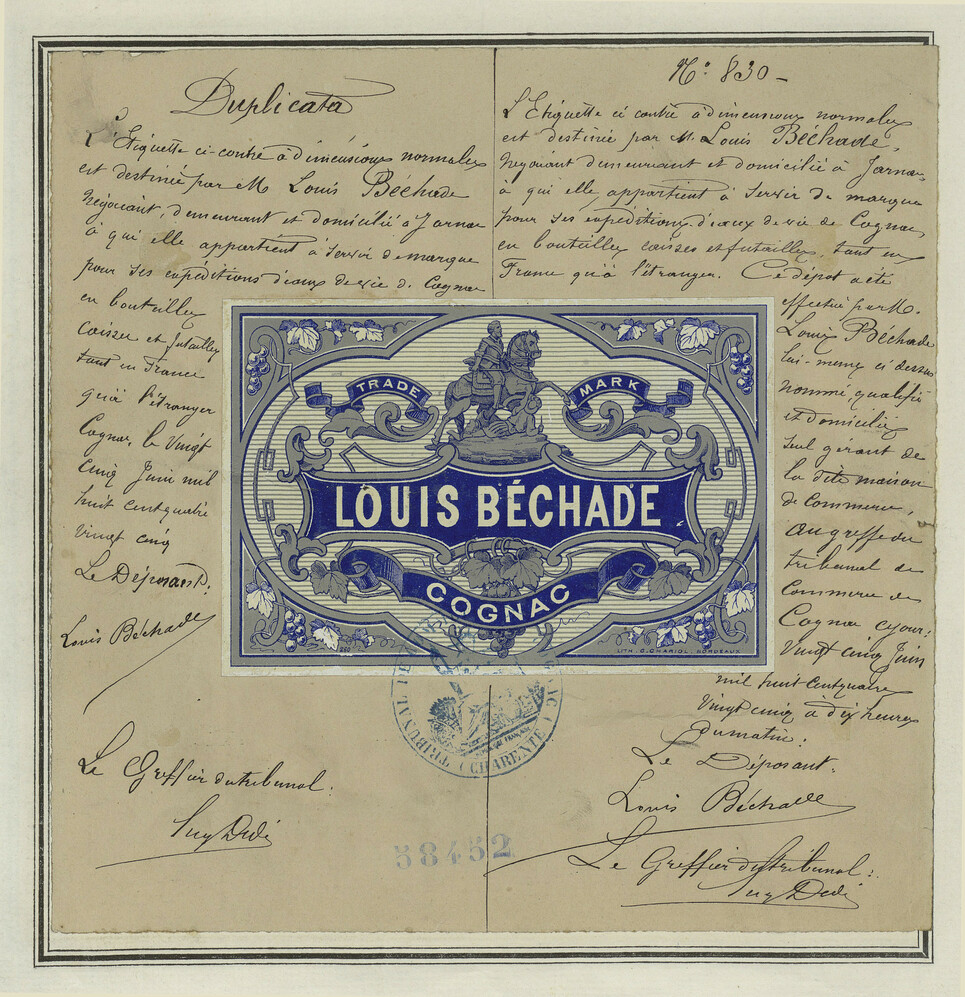 Duplicata
L'Etiquette ci-contre à dimensions normales
est destinée par M Louis Béchade
Négociant, demeurant et domicilié à Jarnac
à qui elle appartient à servir de marque
pour ses expéditions d'eaux de vie de Cognac
en bouteilles
caisses et futailles
tant en France
qu'à l'étranger
Cognac, le Vingt
Cinq Juin mil
huit cent quatre
vingt cinq
Le Déposant:
Louis Béchade
Le Greffier du tribunal:
N° 830-
L'Etiquette ci contre à dimensions normales
est destinée par M. Louis Béchade,
Négociant demeurant et domicilié à Jarnac,
à qui elle appartient à servir de marque
pour ses expéditions d'eaux de vie de Cognac,
en bouteilles caisses et futailles, tant en
France qu'à l'étranger. Ce dépot a été
effectué par M.
Louis Béchade
lui-meme ci dessus
nommé qualifié
et domicilié
seul gérant de
la dite maison
de Commerce,
au greffe du
tribunal de
Commerce de
Cognac ce jour:
Vingt cinq Juin
mil huit cent quatre
Vingt cinq à dix heures
du matin:
Le Déposant.
Louis Béchade
Le Greffier du tribunal:
TRADE MARK
LOUIS BÉCHADE
COGNAC
LITH. C. CHARIOL. BORDEAUX
TRIBUNAL DE
(CHARENTE)
58452